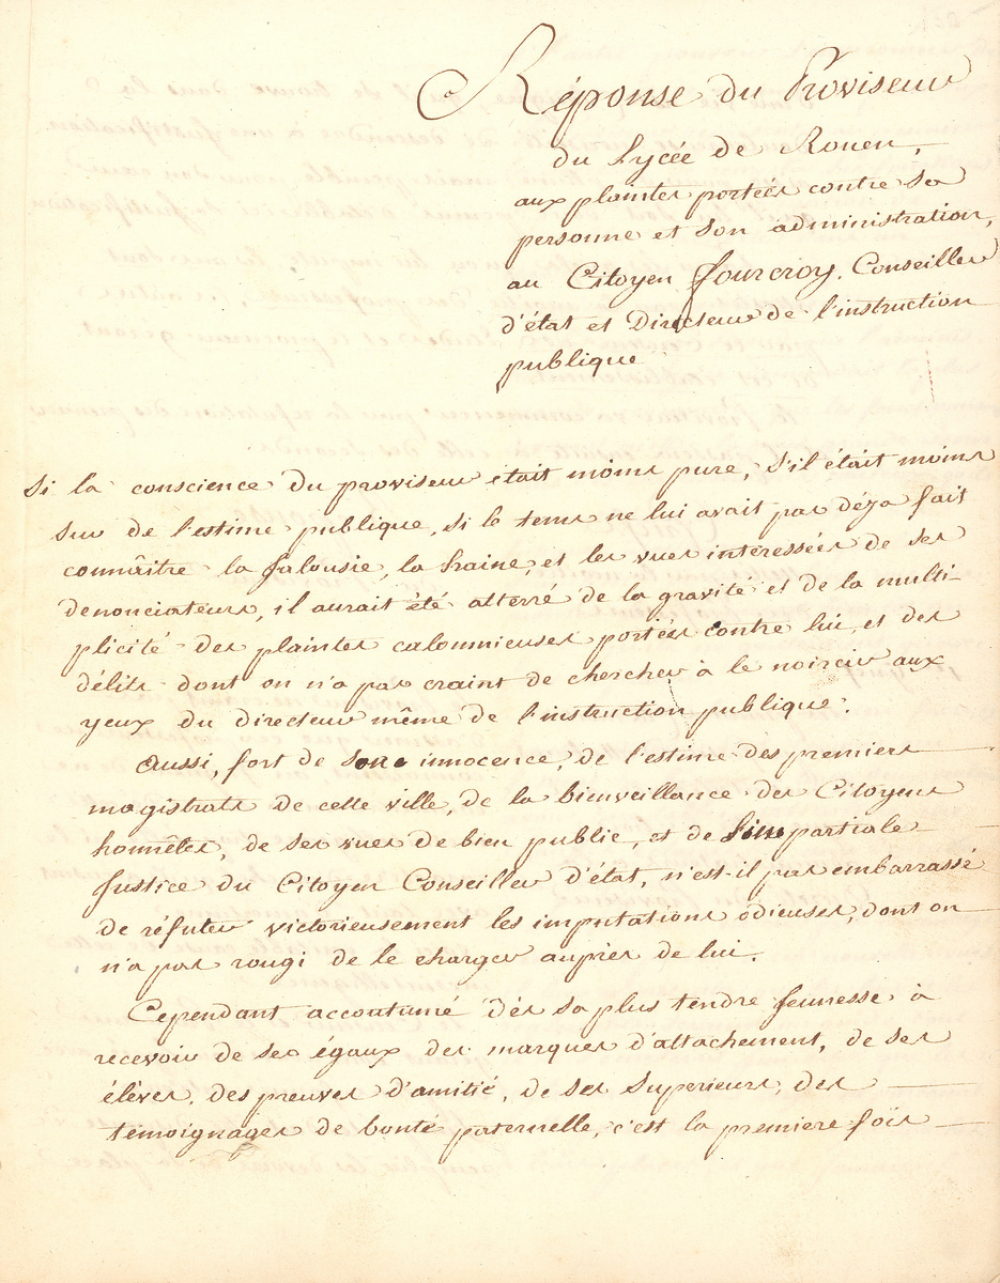 Réponse du Proviseur
du Lycée de Rouen,
aux plaintes portées contre sa
personne et son administration,
au Citoyen Fourcroy, Conseiller
d'état et Directeur de l'instruction
publique
Si la conscience du proviseur était moins pure, s'il était moins
sur de l'estime publique, si le tems ne lui avait pas déja fait
connâitre la jalousie, la haine, et les vues intéressées de ses
denonciateurs, il aurait été atterré de la gravité et de la multi-
plicité des plaintes calomnieuses portées contre lui, et des
délits dont on n'a pas craint de chercher à le noircir aux
yeux du directeur même de l'instruction publique.
Aussi, fort de son innocence, de l'estime des premiers
magistrats de cette ville, de la bienveillance des Citoyens
honnêtes, de ses vues de bien public, et de l'impartiale
justice du Citoyen Conseiller d'état, n'est-il pas embarrassé
de réfuter victorieusement les imputations odieuses, dont on
n'a pas rougi de le charger auprès de lui.
Cependant accoutumé dès sa plus tendre jeunesse à
recevoir de ses égaux des marques d'attachement, de ses
élèves, des preuves d'amitié, de ses superieurs, des
témoignages de bonté paternelle, c'est la premiere fois